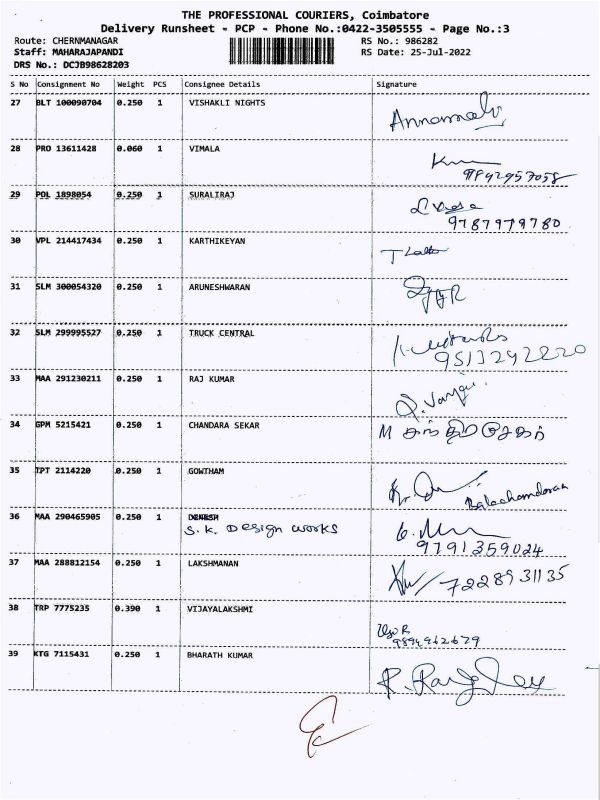 THE PROFESSIONAL COURIERS, Coimbatore
Delivery Runsheet - PCP - Phone No.:0422-3505555 - Page No.:3
Route: CHERNMANAGAR
RS No.: 986282
Staff: MAHARAJAPANDI
RS Date: 25-Jul-2022
DRS No.: DCJB98628203
S No Consignment No Weight PCS Consignee Details Signature
27 BLT 100090704 0.250 1 VISHAKLI NIGHTS
28 PRO 13611428 0.060 1 VIMALA
29 POL 1898054 0.250 1 SURALIRAJ
9787979780
30 VPL 214417434 0.250 1 KARTHIKEYAN
31 SLM 300054320 0.250 1 ARUNESHWARAN
32 SLM 299995527 0.250 1 TRUCK CENTRAL
9513292220
33 MAA 291230211 0.250 1 RAJ KUMAR
34 GPM 5215421 0.250 1 CHANDARA SEKAR
35 TPT 2114220 0.250 1 GOWTHAM
Balachandaran
36 MAA 290465905 0.250 1
S.K. Design works
9791359024
37 MAA 288812154 0.250 1 LAKSHMANAN 7228931135
38 TRP 7775235 0.390 1 VIJAYALAKSHMI
9894962679
39 KTG 7115431 0.250 1 BHARATH KUMAR